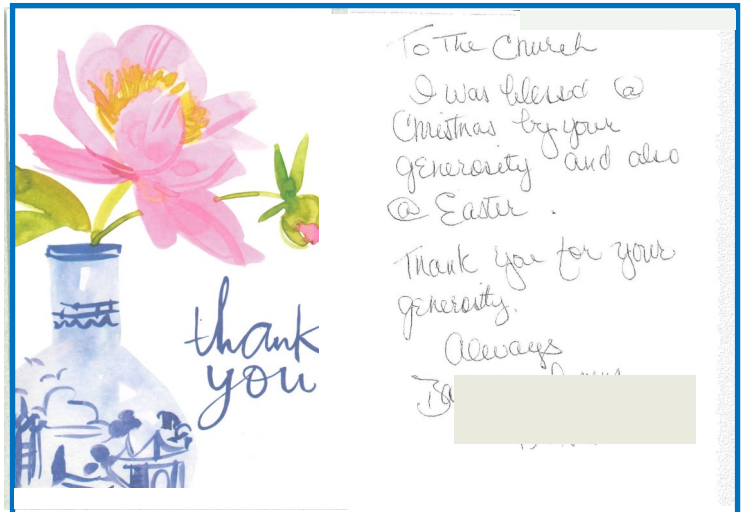 thank
you
To The Church
I was blessed @
Christmas by your
generosity and also
@ Easter.
Thank you for your
generosity.
Always